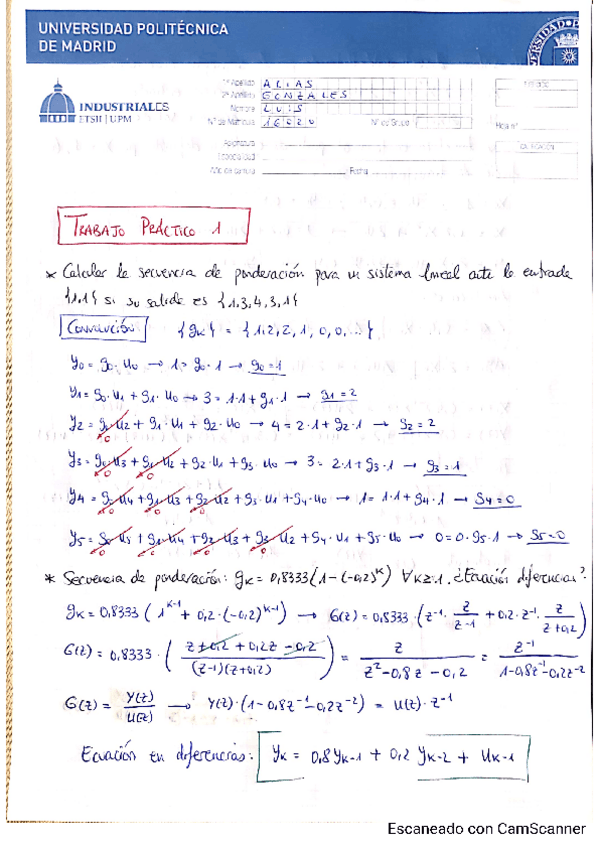 UNIVERSIDAD POLITÉCNICA
DE MADRID
INDUSTRIALES
ETSII | UPM
1er Apellido ALIAS
2º Apellido GONZALES
Nombre LUIS
Nº de Matrícula 16020 Nº de Grupo
Hoja nº
Asignatura
Especialidad
Año de carrera Fecha
CALIFICACIÓN
TRABAJO PRÁCTICO 1
* Calcular la secuencia de ponderación para un sistema lineal ante la entrada
{1,1} si su salida es {1,3,4,3,1}
Convolución {gk} = {1,2,2,1,0,0,...}
y0 = g0·u0 → 1 = g0·1 → g0=1
y1 = g0·u1 + g1·u0 → 3 = 1·1 + g1·1 → g1=2
y2 = g0·u2 + g1·u1 + g2·u0 → 4 = 2·1 + g2·1 → g2=2
y3 = g0·u3 + g1·u2 + g2·u1 + g3·u0 → 3 = 2·1 + g3·1 → g3=1
y4 = g0·u4 + g1·u3 + g2·u2 + g3·u1 + g4·u0 → 1 = 1·1 + g4·1 → g4=0
y5 = g0·u5 + g1·u4 + g2·u3 + g3·u2 + g4·u1 + g5·u0 → 0 = 0·g5·1 → g5=0
* Secuencia de ponderación: gk = 0,8333 (1-(-0,2)^k) ∀k≥1. ¿Ecuación diferencias?
gk = 0,8333 (1^k-1 + 0,2·(-0,2)^k-1) → G(z) = 0,8333·(z^-1· z/(z-1) + 0,2·z^-1· z/(z+0,2))
G(z) = 0,8333·( (z+0,2+0,2z-0,2)/((z-1)(z+0,2)) ) = z/(z^2-0,8z-0,2) = z^-1/(1-0,8z^-1-0,2z^-2)
G(z) = Y(z)/U(z) → Y(z)·(1-0,8z^-1-0,2z^-2) = U(z)·z^-1
Ecuación en diferencias: yk = 0,8yk-1 + 0,2 yk-2 + uk-1
Escaneado con CamScanner